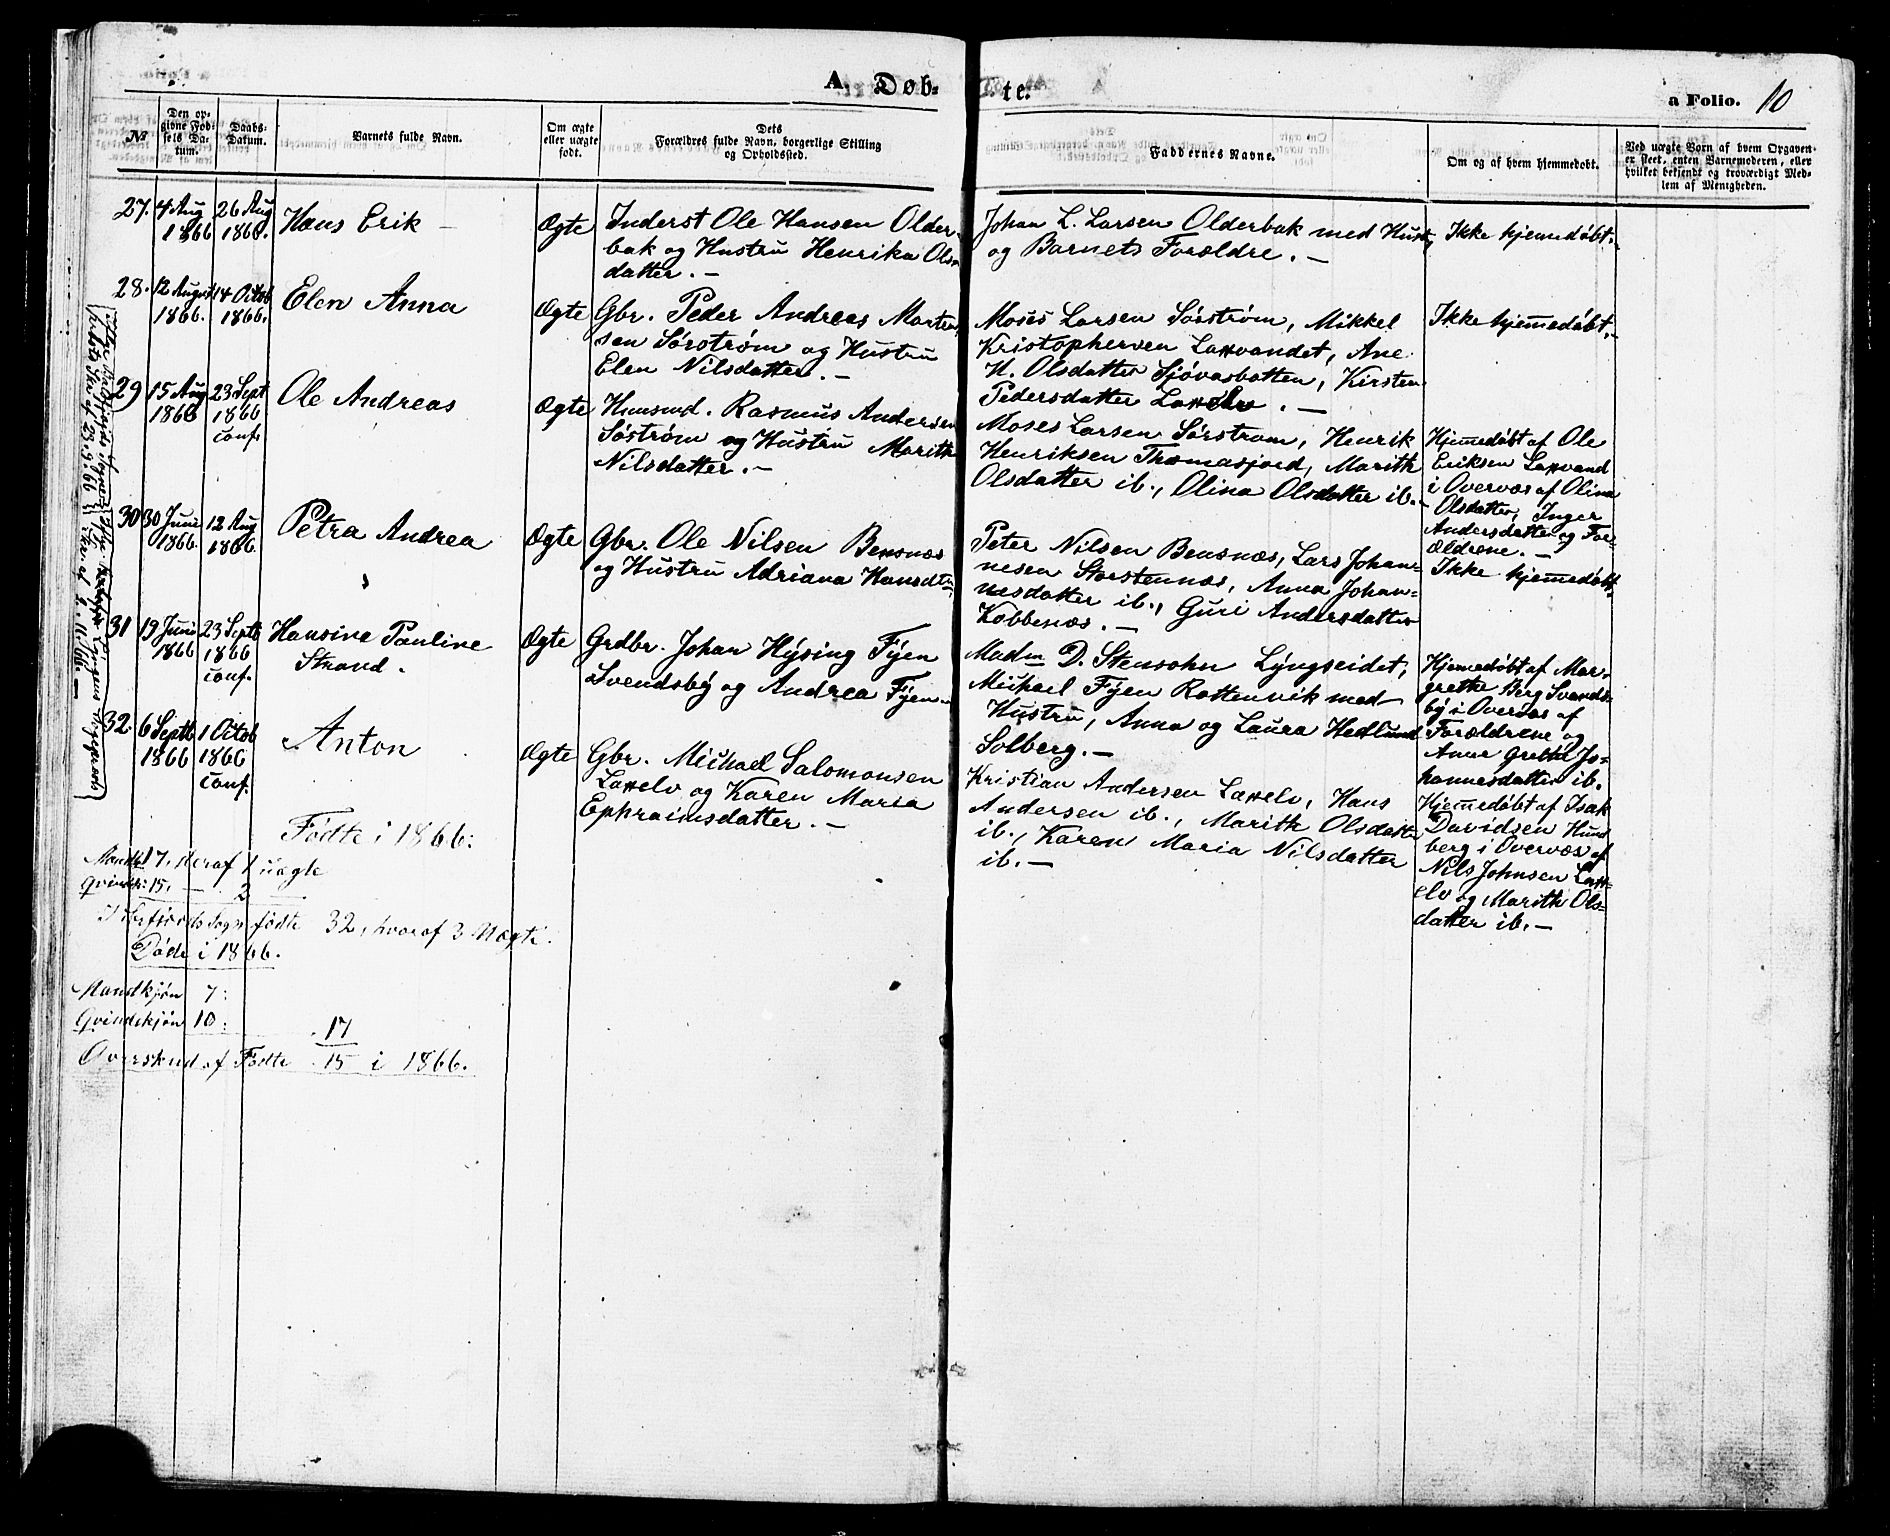 A. Døb-
te.
a Folio. 10
No.
Den op-
givne Fød-
sels Da-
tum.
Daabs-
Datum.
Barnets fulde Navn.
Om ægte
eller uægte
født.
Dets
Forældres fulde Navn, borgerlige Stilling
og Opholdssted.
Faddernes Navne.
Om og af hvem hjemmedøbt.
Ved uægte Børn af hvem Opgaven
er skeet, enten Barnemoderen, eller
hvilket bekjendt og troværdigt Med-
lem af Menigheden.
27.
4 Aug
1866
26 Aug
1866.
Hans Erik –
Ægte
Inderst Ole Hansen Older-
bak og Hustru Henrika Ols-
datter. –
Johan L. Larsen Olderbak med Hustr
og Barnets Forældre. –
Ikke hjemdøbt. –
28.
12 August
1866.
14 Octob
1866.
Elen Anna
Ægte
Gbr. Peder Andreas Morten-
sen Sørstrøm og Hustru
Elen Nilsdatter. –
Moses Larsen Sørstrøm, Mikkel
Kristophersen Laxvandet, Ane
H. Olsdatter Sjøvasbotten, Kirsten
Pedersdatter Laxelv. –
Ikke hjemedøbt. –
29
15 Aug
1866
23 Sept
1866
conf.
Ole Andreas
Ægte
Huusmd. Rasmus Andersen
Søstrøm og Hustru Marith
Nilsdatter. –
Moses Larsen Sørstrøm, Henrik
Henriksen Thomasjord, Marith
Olsdatter ib., Olina Olsdatter ib. –
Hjemedøbt af Ole
Eriksen Laxvand
i Overvær af Olina
Olsdatter, Inger
Andersdatter og For-
ældrene. –
30
30 Juni
1866.
12 Aug
1866.
Petra Andrea
Ægte
Gbr. Ole Nilsen Bensnæs
og Hustru Adriana Hansdtr.
Peter Nilsen Bensnæs, Lars Johan-
nesen Storstennæs, Anna Johan-
nesdatter ib., Guri Andersdatter
Kobbenæs. –
Ikke hjemedøbt. –
31
19 Juni
1866
23 Septb
1866
conf.
Hansine Pauline
Strand.
Ægte
Grdbr. Johan Hysing Fyen
Svendsby og Andrea Fyen –
Madm D. Stensohn Lyngseidet,
Michael Fyen Rottenvik med
Hustru, Anna og Laura Hedlund
Solberg. –
Hjemedøbt af Mar-
grethe Berg Svends-
by i Overvær af
Forældrene og
Anne Grethe Jo-
hannesdatter ib.
32
6 Septb
1866
1 Octob
1866
conf.
Anton
Ægte
Gbr. Michael Salomonsen
Laxelv og Karen Maria
Ephraimsdatter. –
Kristian Andersen Laxelv, Hans
Andersen ib., Marith Olsdatter
ib., Karen Maria Nilsdatter
ib. –
Hjemedøbt af Isak
Davidsen Hund
berg i Overvær af
Nils Johnsen Lax-
elv og Marith Ols-
datter ib. –
Fødte i 1866:
Mandkj 17, deraf 1 uægte
Qvindekj: 15, – 2 –
Sogn fødte 32, hvoraf 3 Uægte.
Døde i 1866.
Mandkjøn 7:
Qvindekjøn 10:
17
Overskud af Fødte 15 i 1866.